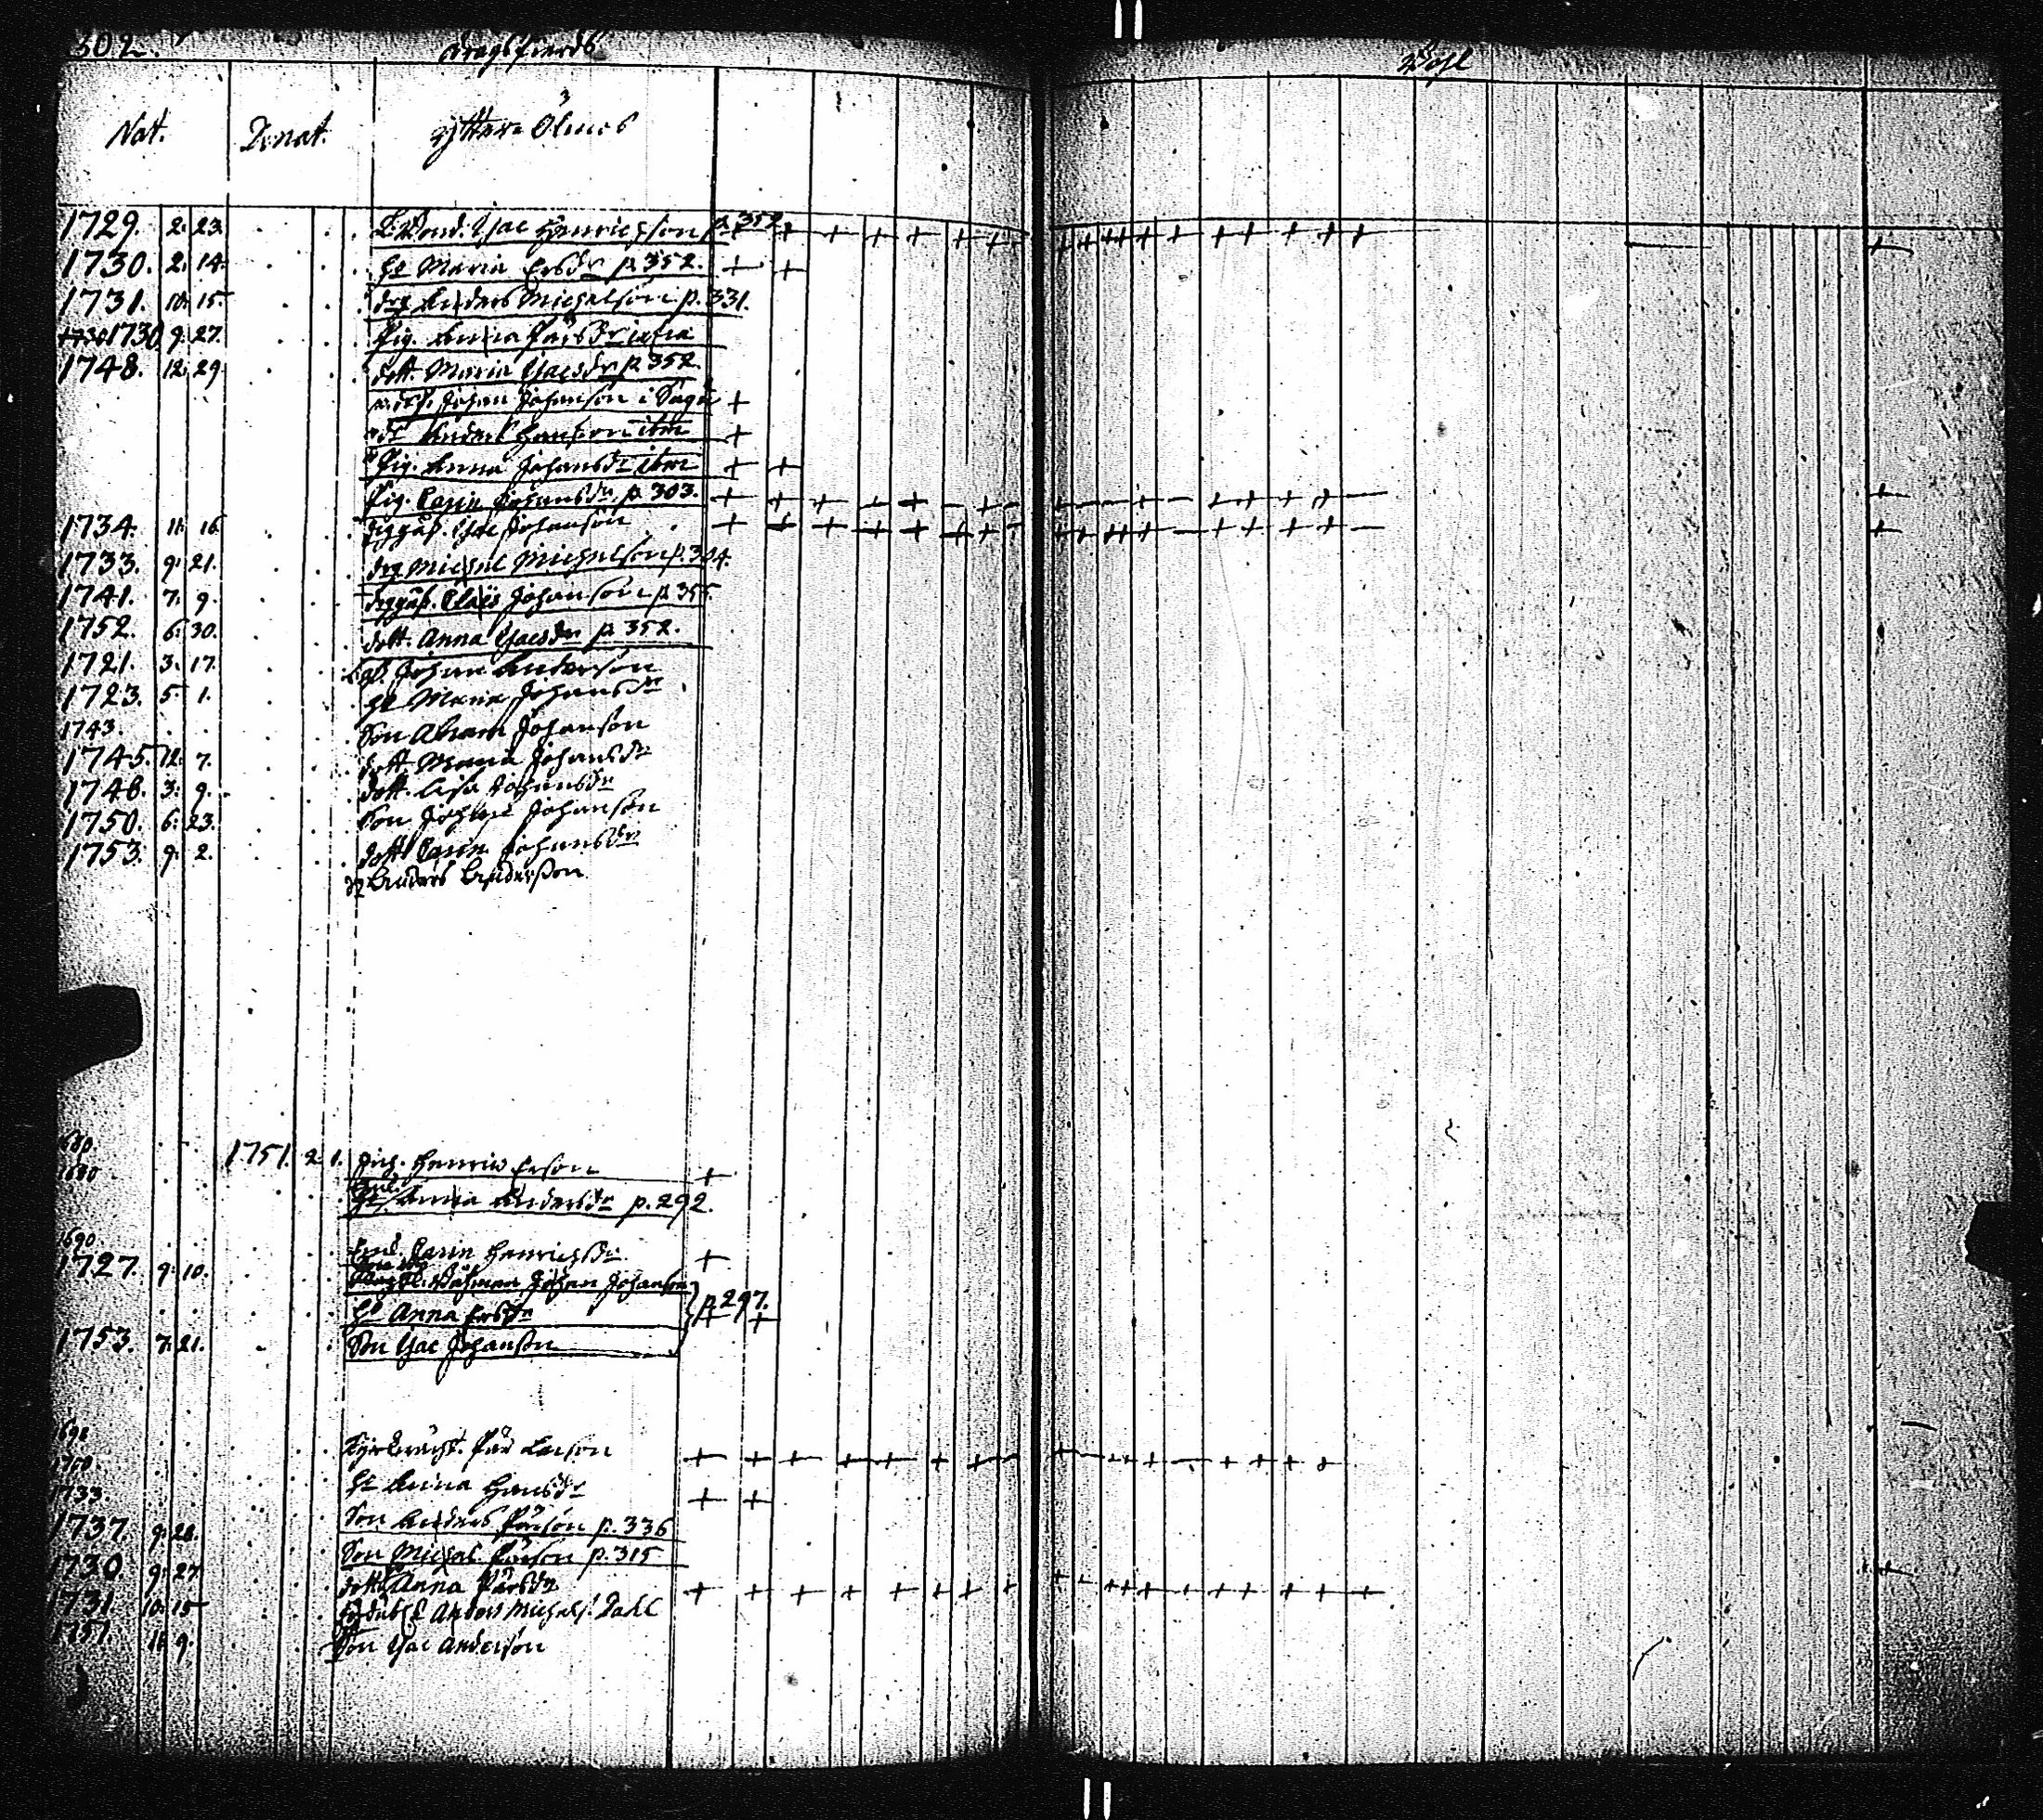 302.
Dragsfierds
Wohl
Nat. Denat. 3
Yttere Ölmos
1729. 2. 23. Isac Henrichsson p. 352
1730. 2. 14. Hu Maria Ersdr p. 352.
1731. 10. 15. drg Anders Michelsson p. 331.
1730 1730 9. 27. Pig. Anna Pärsdr
1748. 12. 29. dott. Maria Isacsdr p. 352.
Johan Johansson i
Anders Hansson item
Pig. Anna Johansdr item
Pig. Carin Johansdr p. 303.
1734. 11. 16. Isac Johansson
1733. 9. 21. drg Michel Michelsson p. 304.
1741. 7. 9. Johansson p. 355.
1752. 6. 30. dott. Anna Isacsdr p. 352.
1721. 3. 17. Johan Andersson
1723. 5. 1. Hu Maria Johansdr
1743. Son Abram Johansson
1745. 12. 7. dott. Maria Johansdr
1748. 3. 9. dott. Lisa Johansdr
1750. 6. 23. Son Johansson
1753. 9. 2. dott. Carin Johansdr
Anders Andersson
1680. 1751. 2. 1. Henric Ersson
1680 Anna Andersdr p. 292.
1690. Carin Henrichsdr
1727. 9. 10. Johan Johansson
Hu Anna Ersdr p. 297.
1753. 7. 21. Son Isac Johansson
Pär Larsson
1700. Hu Anna Hansdr
1733. Son Anders Pärsson p. 336
1737. 9. 28. Son Michel Pärsson p. 315
1730 9. 27 dott. Anna Pärsdr
1731. 10. 15 Anders Michels. Dahl
1757 11. 9. Son Isac Andersson